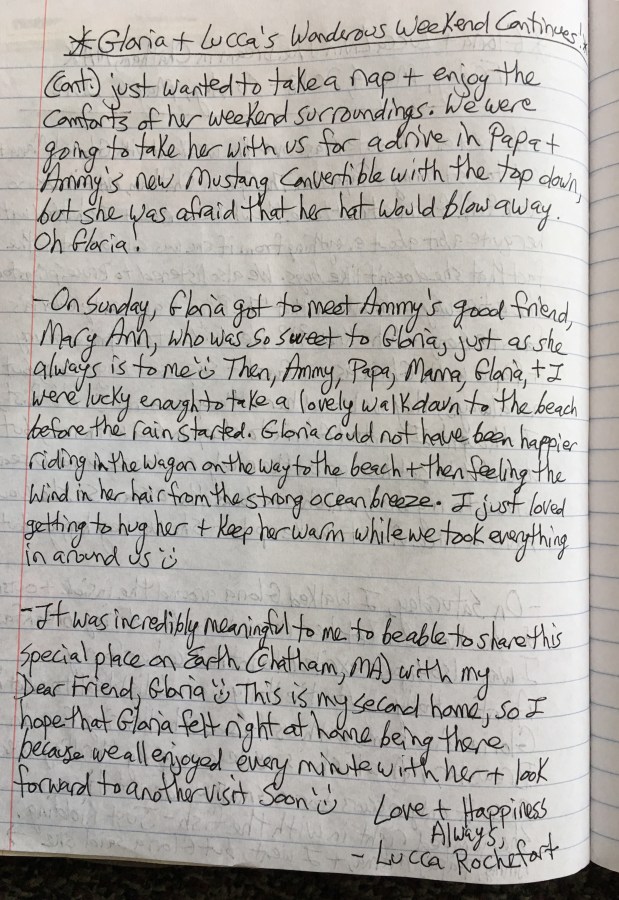 *Gloria + Lucca's Wonderous Weekend Continues!*
(Cont.) just wanted to take a nap + enjoy the
comforts of her weekend surroundings. We were
going to take her with us for a drive in Papa +
Ammy's new Mustang Convertible with the top down,
but she was afraid that her hat would blow away.
Oh Gloria!
-On Sunday, Gloria got to meet Ammy's good friend,
Mary Ann, who was so sweet to Gloria, just as she
always is to me ü Then, Ammy, Papa, Mama, Gloria, + I
were lucky enough to take a lovely walk down to the beach
before the rain started. Gloria could not have been happier
riding in the wagon on the way to the beach + then feeling the
wind in her hair from the strong ocean breeze. I just loved
getting to hug her + keep her warm while we took everything
in around us ü
-It was incredibly meaningful to me to be able to share this
special place on Earth (Chatham, MA) with my
Dear Friend, Gloria ü This is my second home, so I
hope that Gloria felt right at home being there
because we all enjoyed every minute with her + look
forward to another visit soon ü
Love + Happiness
Always,
- Lucca Rochefort